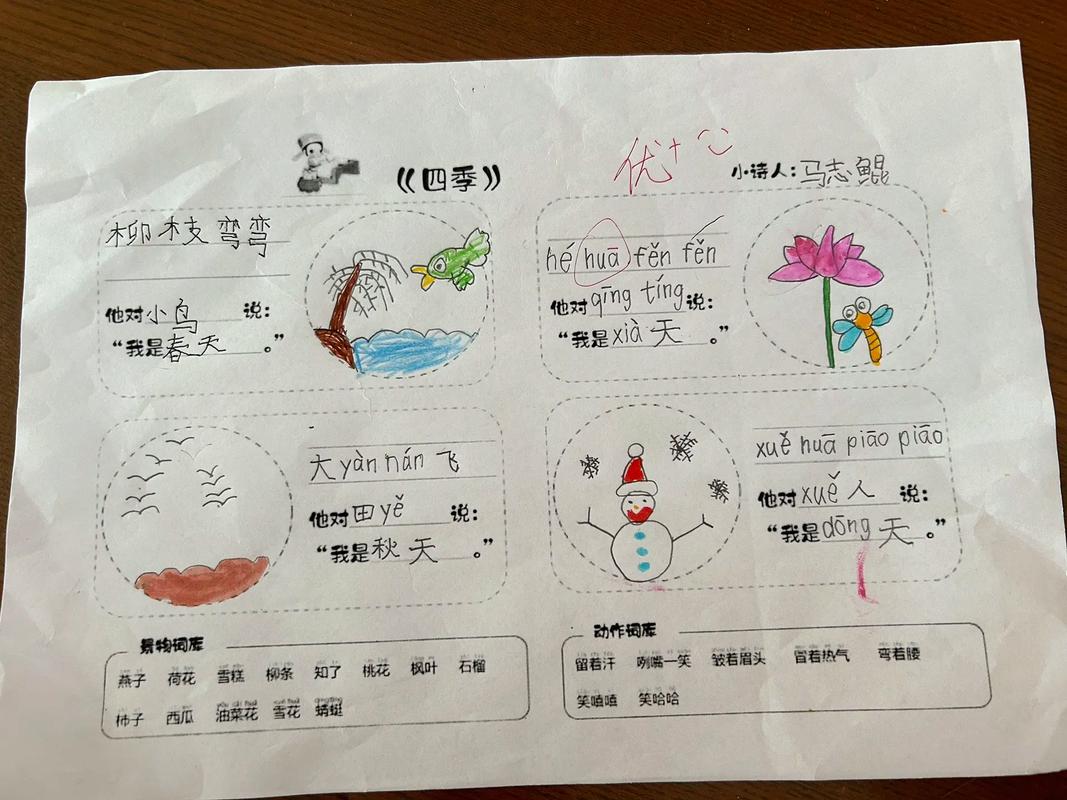 《四季》
优+
小诗人:马志鲲
柳枝弯弯
他对小鸟说:
“我是春天。”
hé huā fěn fěn
他对qīng tíng说:
“我是xià天”
大yàn nán飞
他对田yě说:
“我是秋天。”
xuě huā piāo piāo
他对xuě人说:
“我是dōng天。”
景物词库
燕子 荷花 雪糕 柳条 知了 桃花 枫叶 石榴
柿子 西瓜 油菜花 雪花 蜻蜓
动作词库
留着汗 咧嘴一笑 皱着眉头 冒着热气 弯着腰
笑嘻嘻 笑哈哈